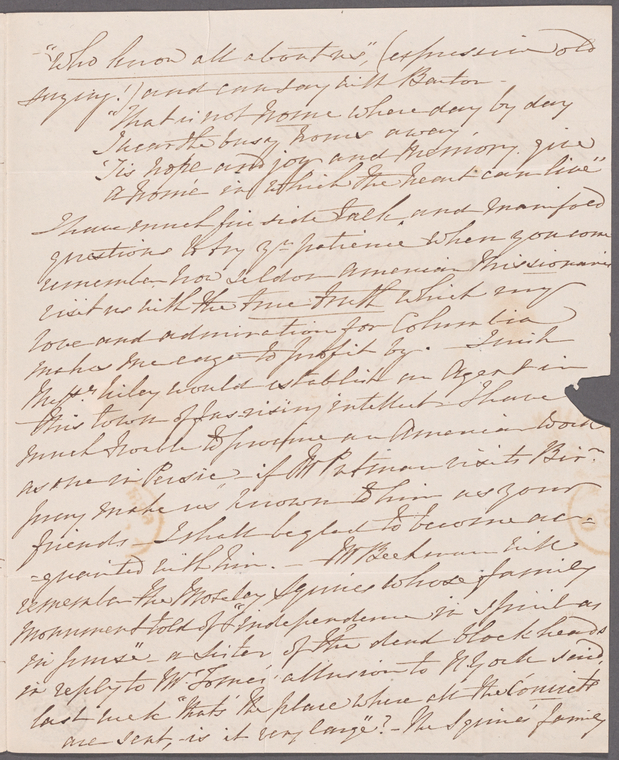 "Who know all about us", (expression old
saying!) and can say with Barton -
"That is not home where day by day
I wear the busy hours away
'Tis hope and joy and memory give
a home in which the heart can live"
I have much fire side talk and manifold
questions to try yr patience when you come
remember how seldom American Missionaries
visit us with the true truth which my
love and admiration for Columbia
makes me eager to profit by. I wish
Messrs Wiley would establish an Agent in
this town of fas rising intellect I have
much trouble to procure an American work
as one in Persia - if Mr Putman visits Birm
pray make us known to him as your
friends I shall be glad to become ac=
=quainted with him. - Mr Beekman will
remember the Moseley Squires whose family
monument told of "independence in spirit as
in purse" - a sister of the dead blockheads
in reply to Mr Tomes' allusion to N York said
last week "that's the place where all the Convicts
are sent, - is it very large"? - The Squires' family